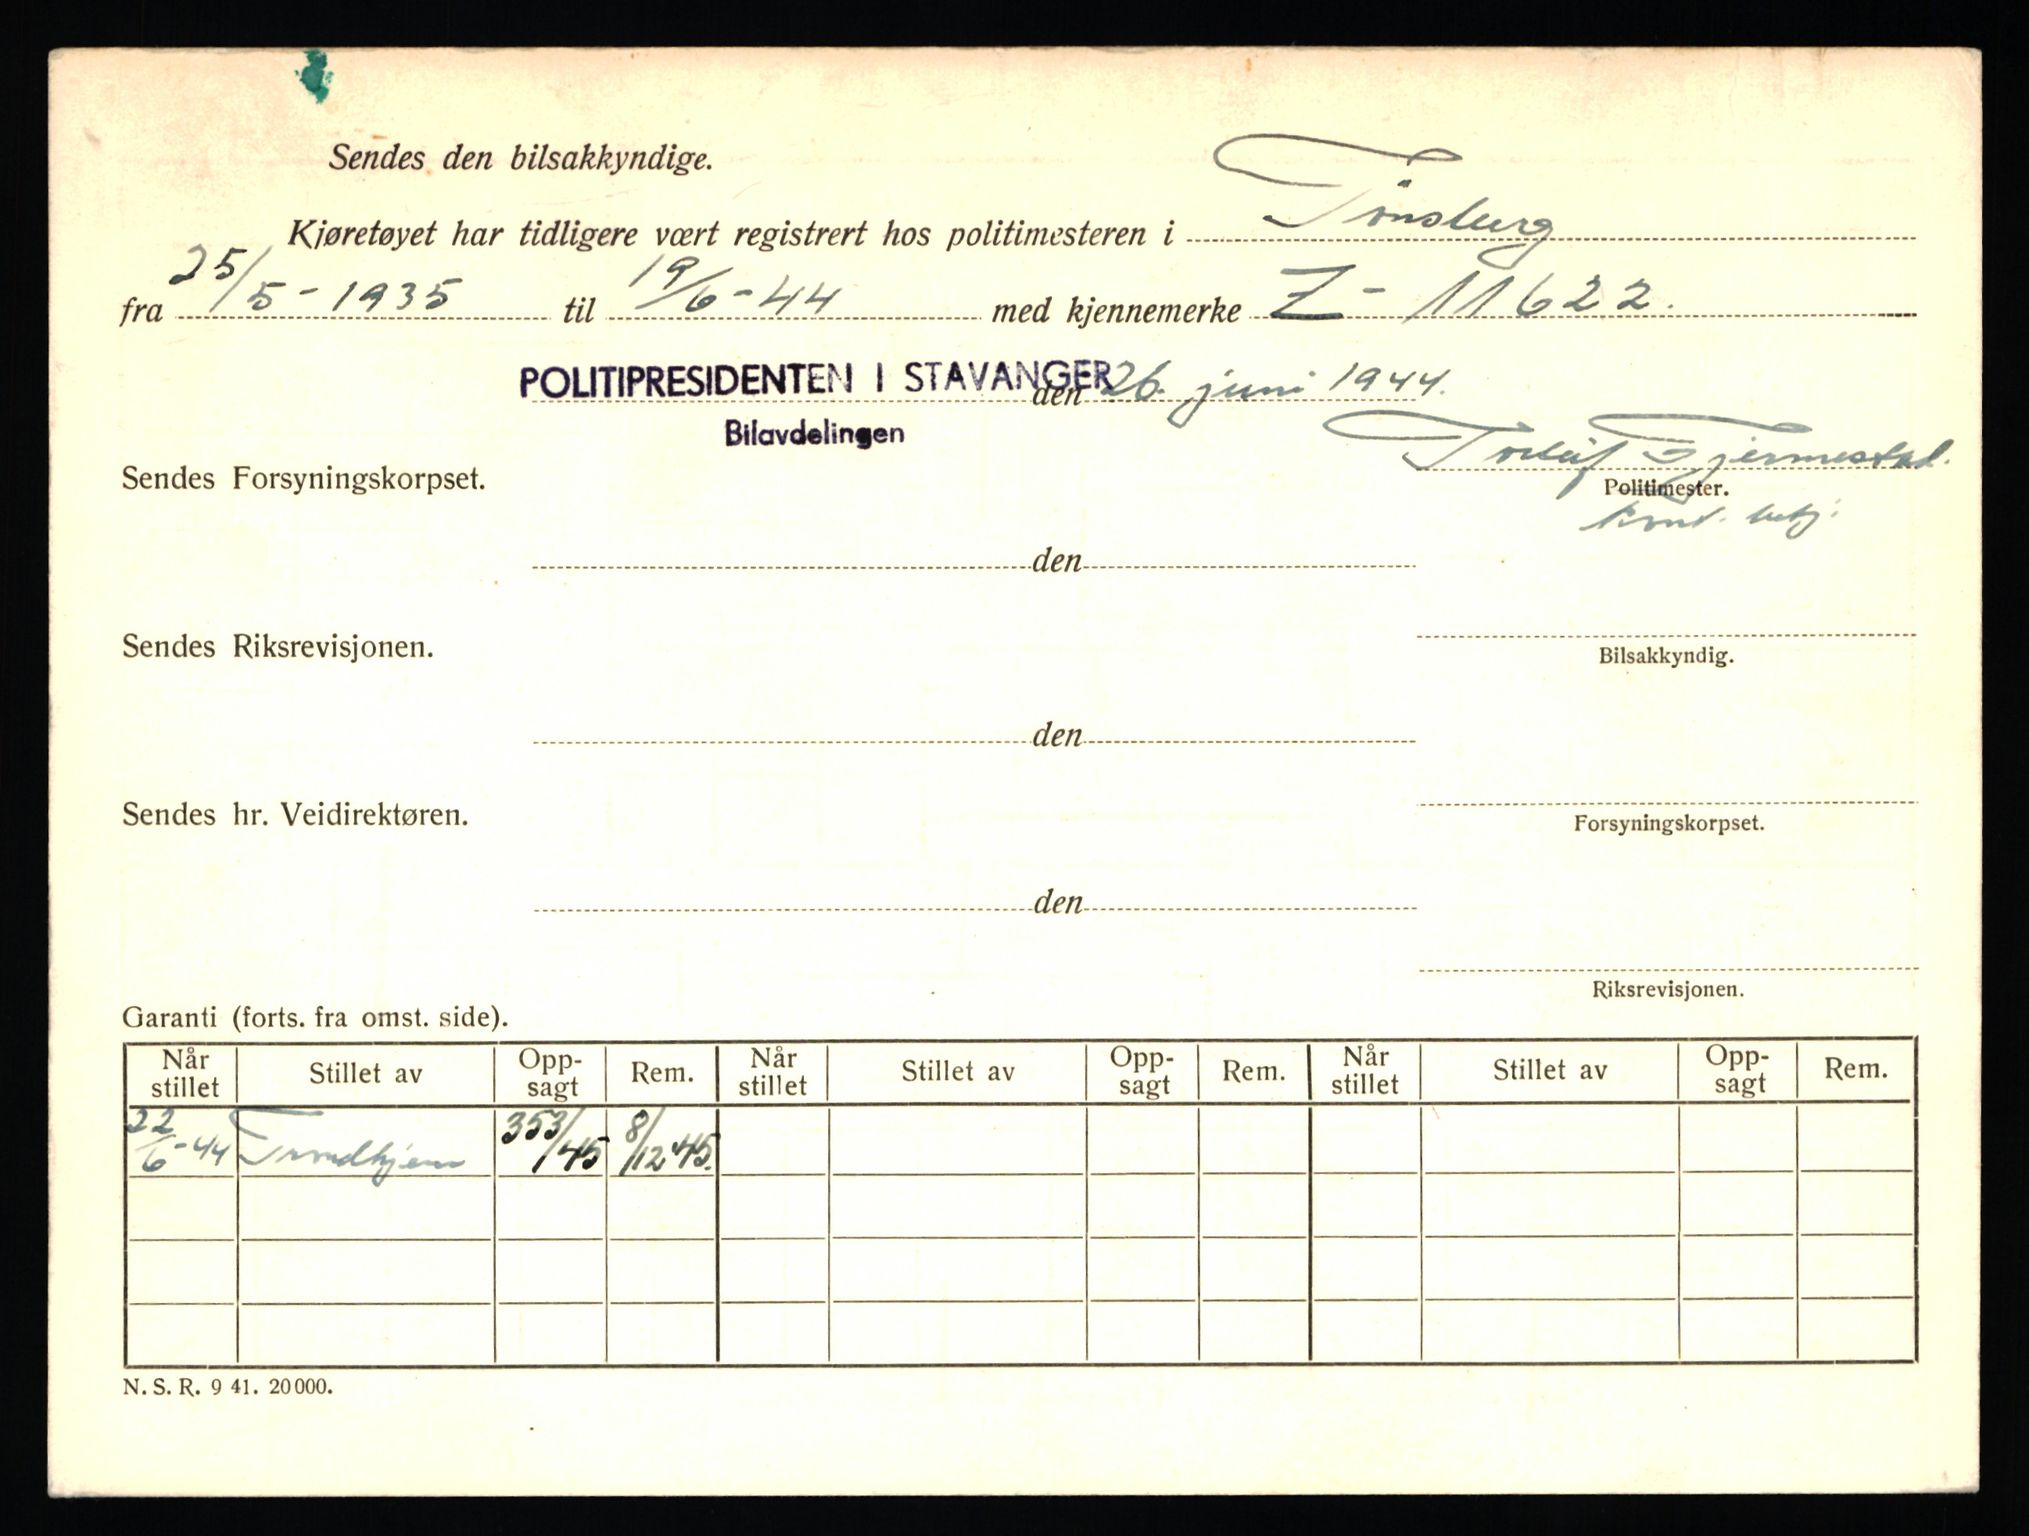 Sendes den bilsakkyndige.
Kjøretøyet har tidligere vært registrert hos politimesteren i Tönsberg
fra 25/5-1935 til 19/6-44 med kjennemerke Z-11622.
POLITIPRESIDENTEN I STAVANGER den 26. juni 1944.
Bilavdelingen
Sendes Forsyningskorpset.
Torleif Fjermestad.
Politimester.
den
Sendes Riksrevisjonen.
Bilsakkyndig.
den
Sendes hr. Veidirektøren.
Forsyningskorpset.
den
Riksrevisjonen.
Garanti (forts. fra omst. side).
Når stillet Stillet av Opp-sagt Rem. Når stillet Stillet av Opp-sagt Rem. Når stillet Stillet av Opp-sagt Rem.
22/6-44 Trondhjem 353/45 8/12 45.
N. S. R. 9 41. 20 000.